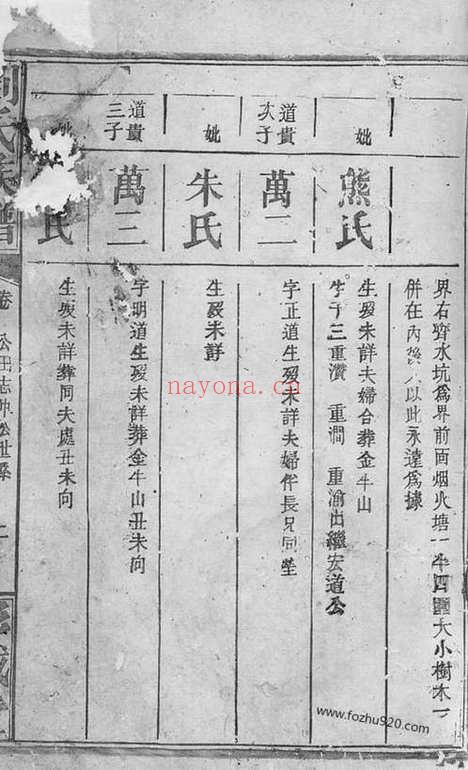 界右齊水坑爲界前面烟火塘一半四圍大小樹木一
併在內後人以此永遠爲據
妣
熊氏
生歿未詳夫婦合葬金牛山
生子三重瀆 重澗 重渝出繼宏道公
道貴次子
萬二
字正道生歿未詳夫婦伴長兄同塋
妣
朱氏
生歿未詳
道貴三子
萬三
字明道生歿未詳葬金牛山丑未向
妣
氏
生歿未詳葬同夫處丑未向
氏族譜
卷
世系
nayona.cn
www.fozhu920.com